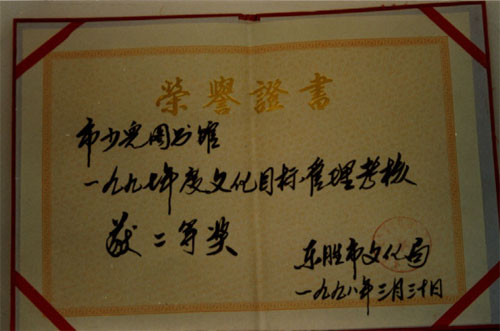 榮譽證書
市少儿图书馆
一九九七年度文化目标管理考核
获二等奖
东胜市文化局
一九九八年三月三十日